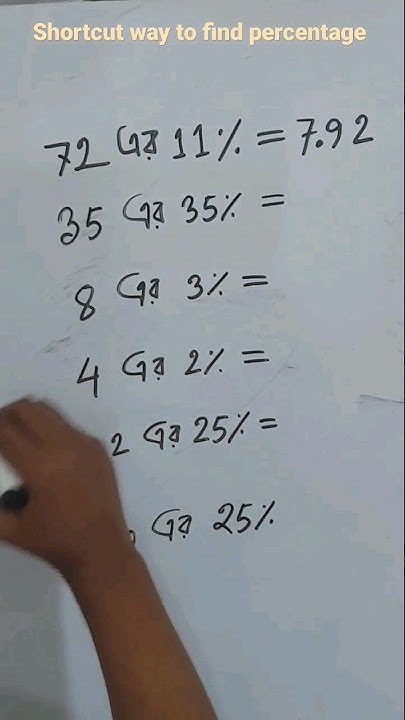 Shortcut way to find percentage
72 এর 11% = 7.92
35 এর 35% =
8 এর 3% =
4 এর 2% =
2 এর 25% =
এর 25%